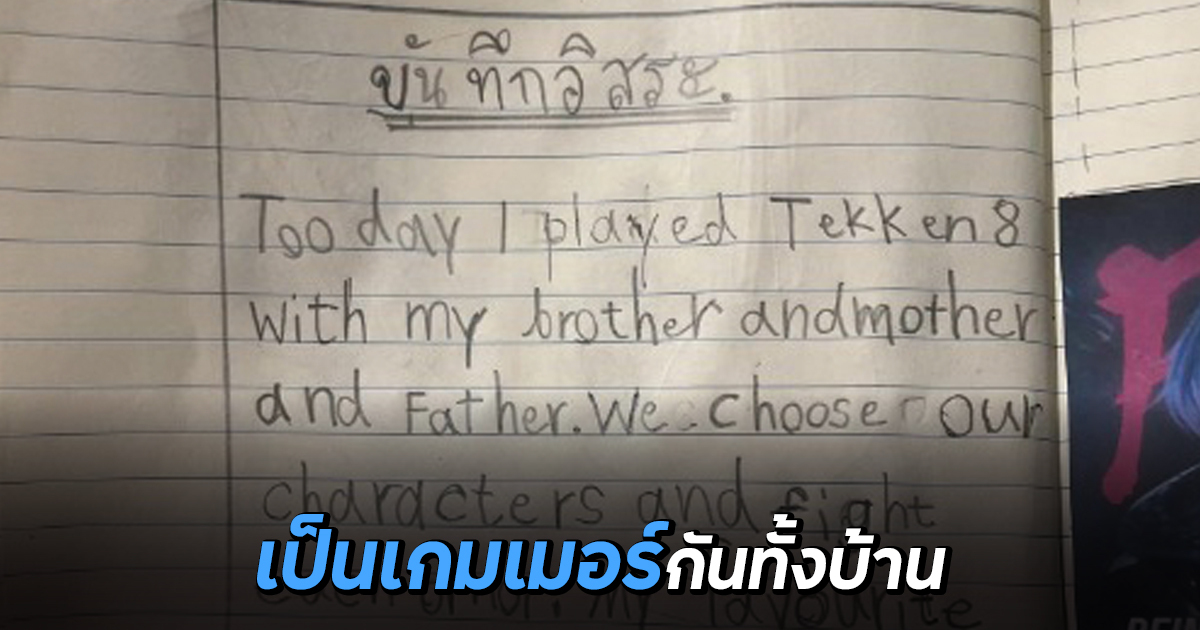 บันทึกอิสระ.
Tooday I played Tekken 8
with my brother andmother
and Father. We choose our
characters and fight
เป็นเกมเมอร์กันทั้งบ้าน
my favourite